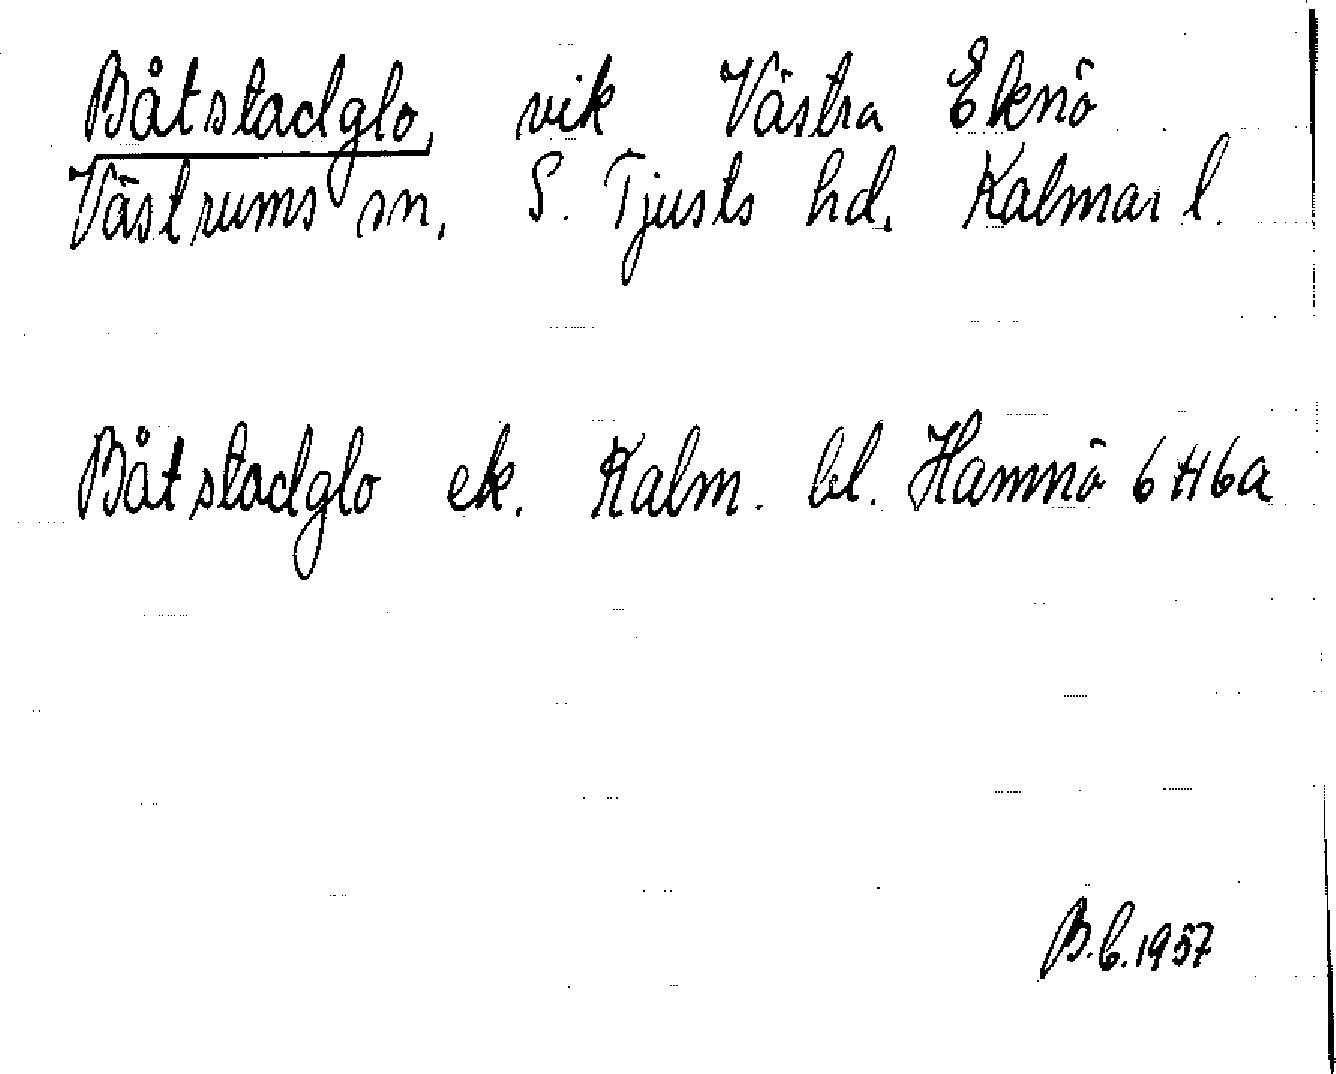 Båtstadglo, vik Västra Eknö
Västrums sn, S. Tjusts hd, Kalmar l.
Båtstadglo ek. Kalm. bl. Hamnö 6H6a
B.b.1957